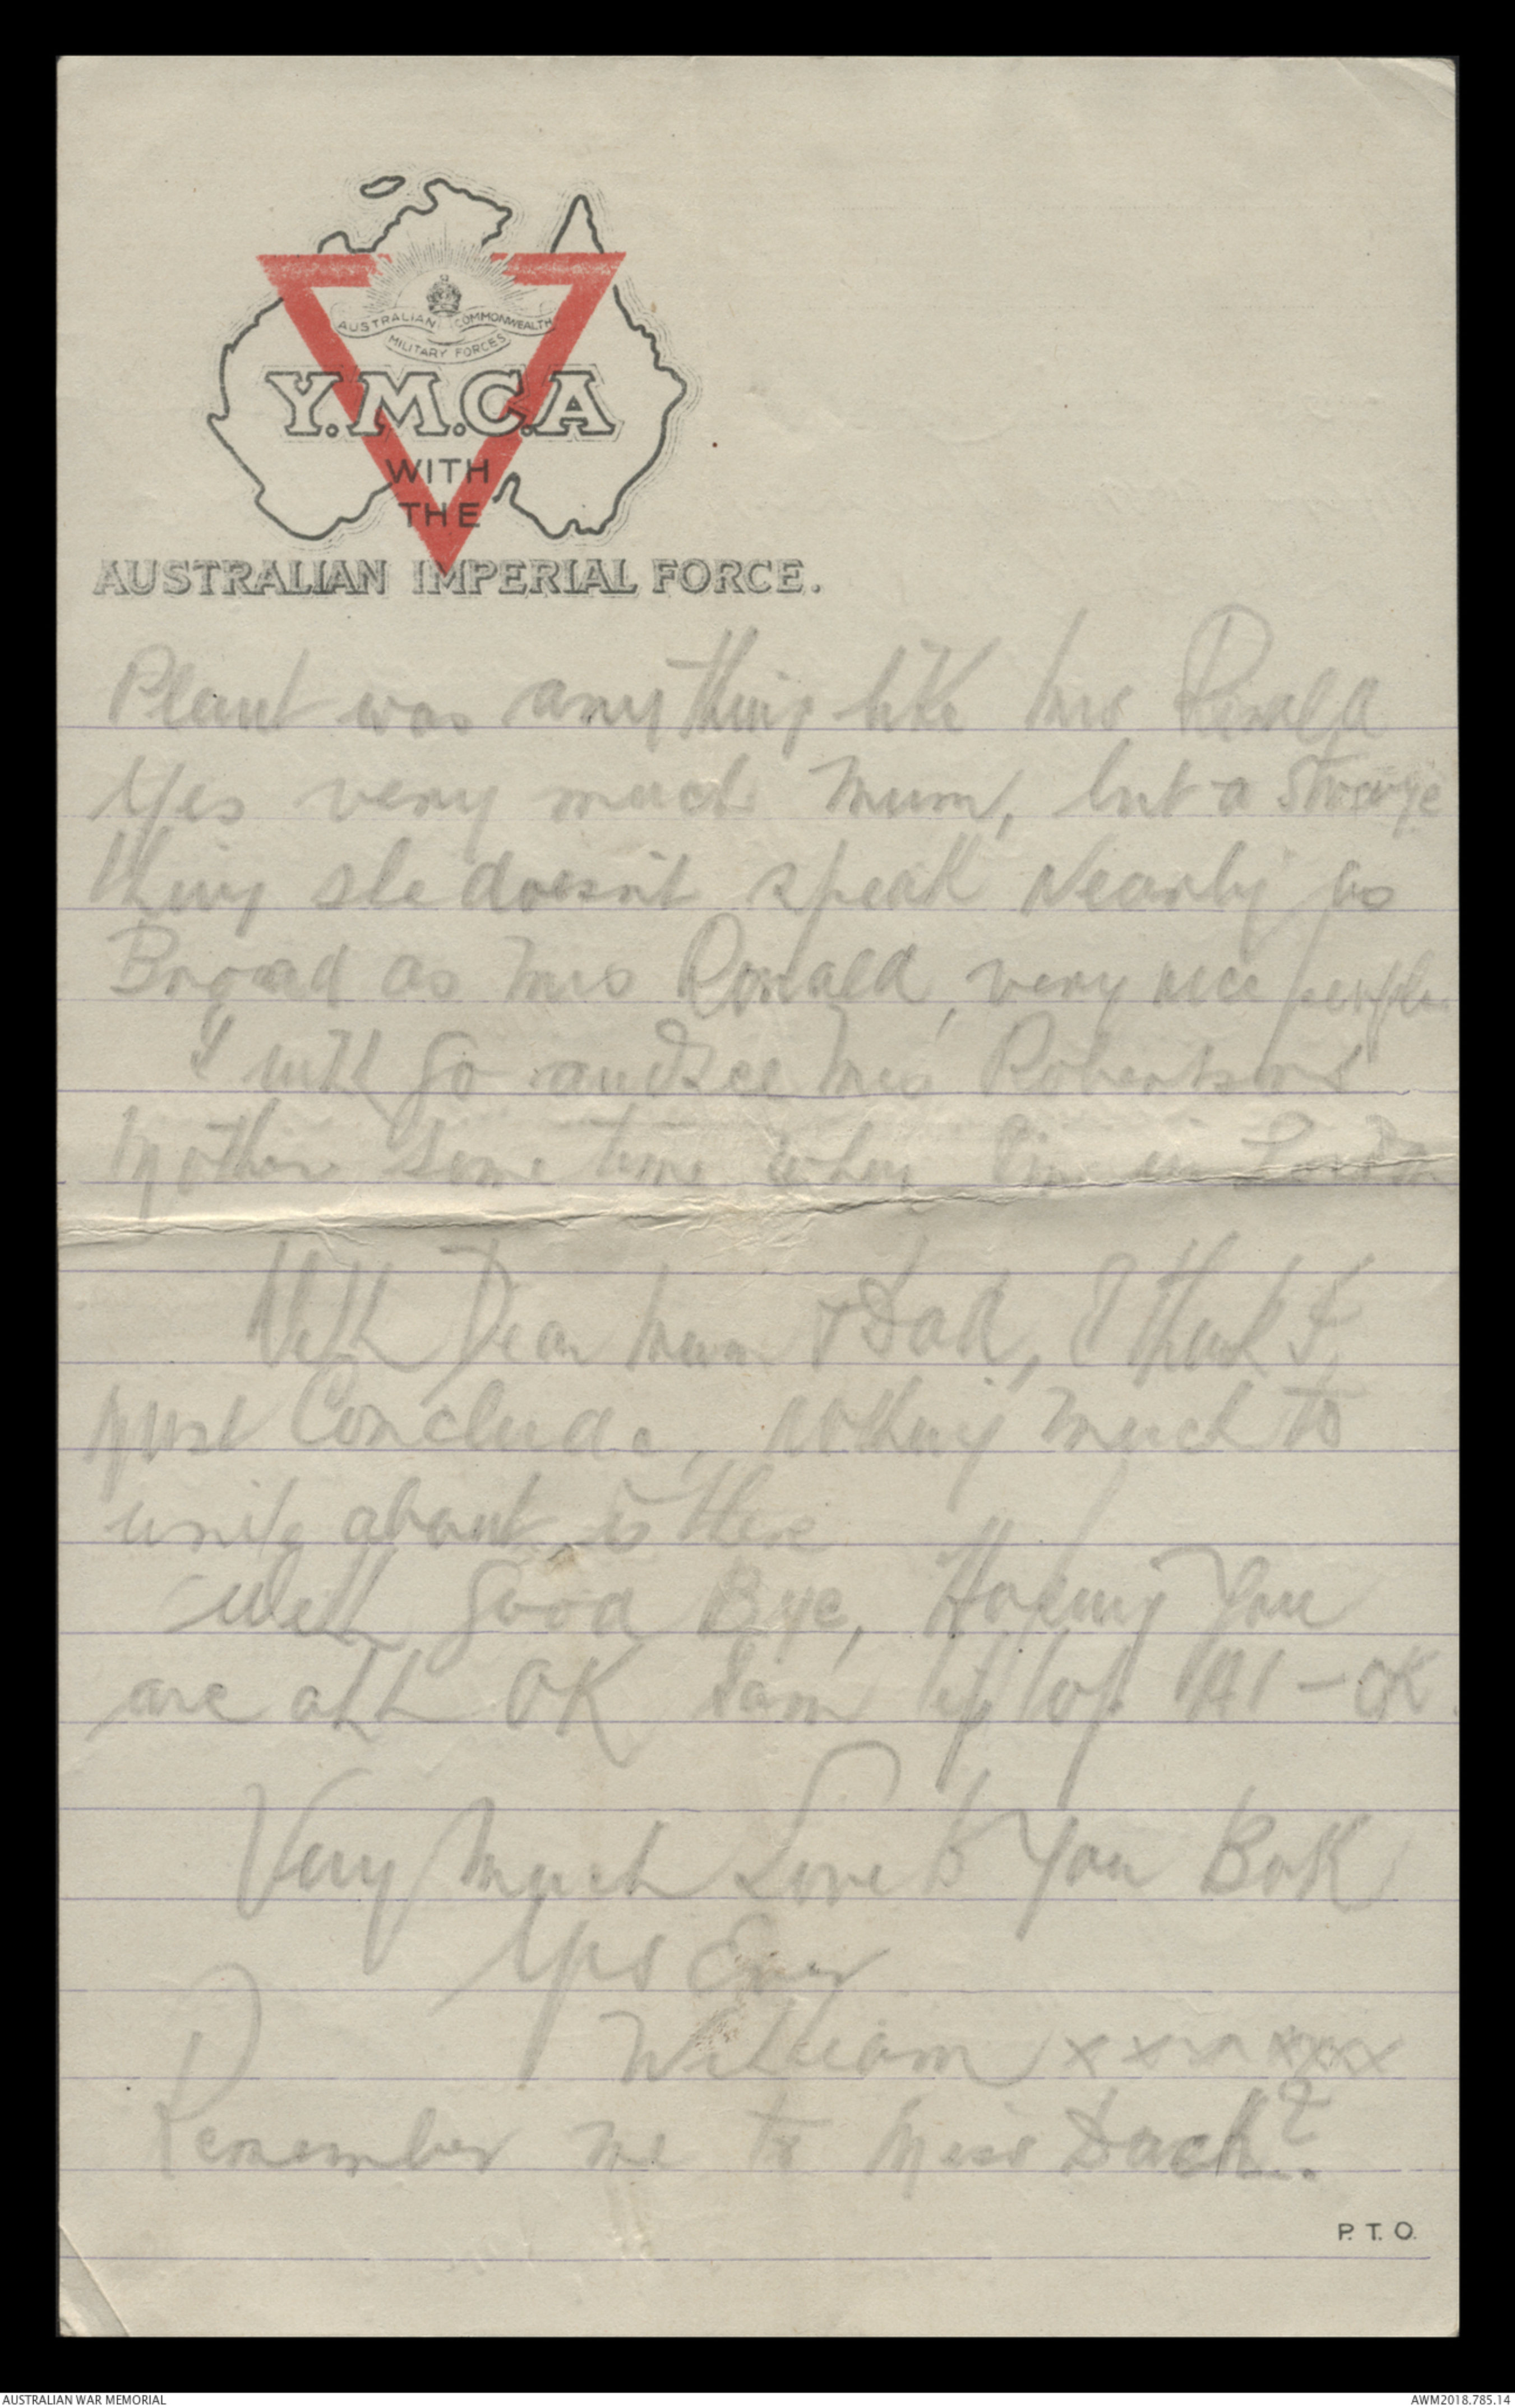 AUSTRALIAN COMMONWEALTH
MILITARY FORCES
Y.M.C.A
WITH
THE
AUSTRALIAN IMPERIAL FORCE.
Plant was any thing like Mrs Ronald
Yes very much Mum, but a strange
thing she doesn't speak Nearly as
Broad as Mrs Ronald, very nice people
I will go and see Mrs Robertson's
Mother some time when I'm in London
Well Dear Mum & Dad, I think I
must Conclude, nothing much to
write about is there
Well Good Bye, Hoping You
are all OK I am tip top A1 - OK.
Very Much Love to You Both
Yrs Ever
William x x x x x x x
Remember me to Miss
P.T.O.
AUSTRALIAN WAR MEMORIAL
AWM2018.785.14